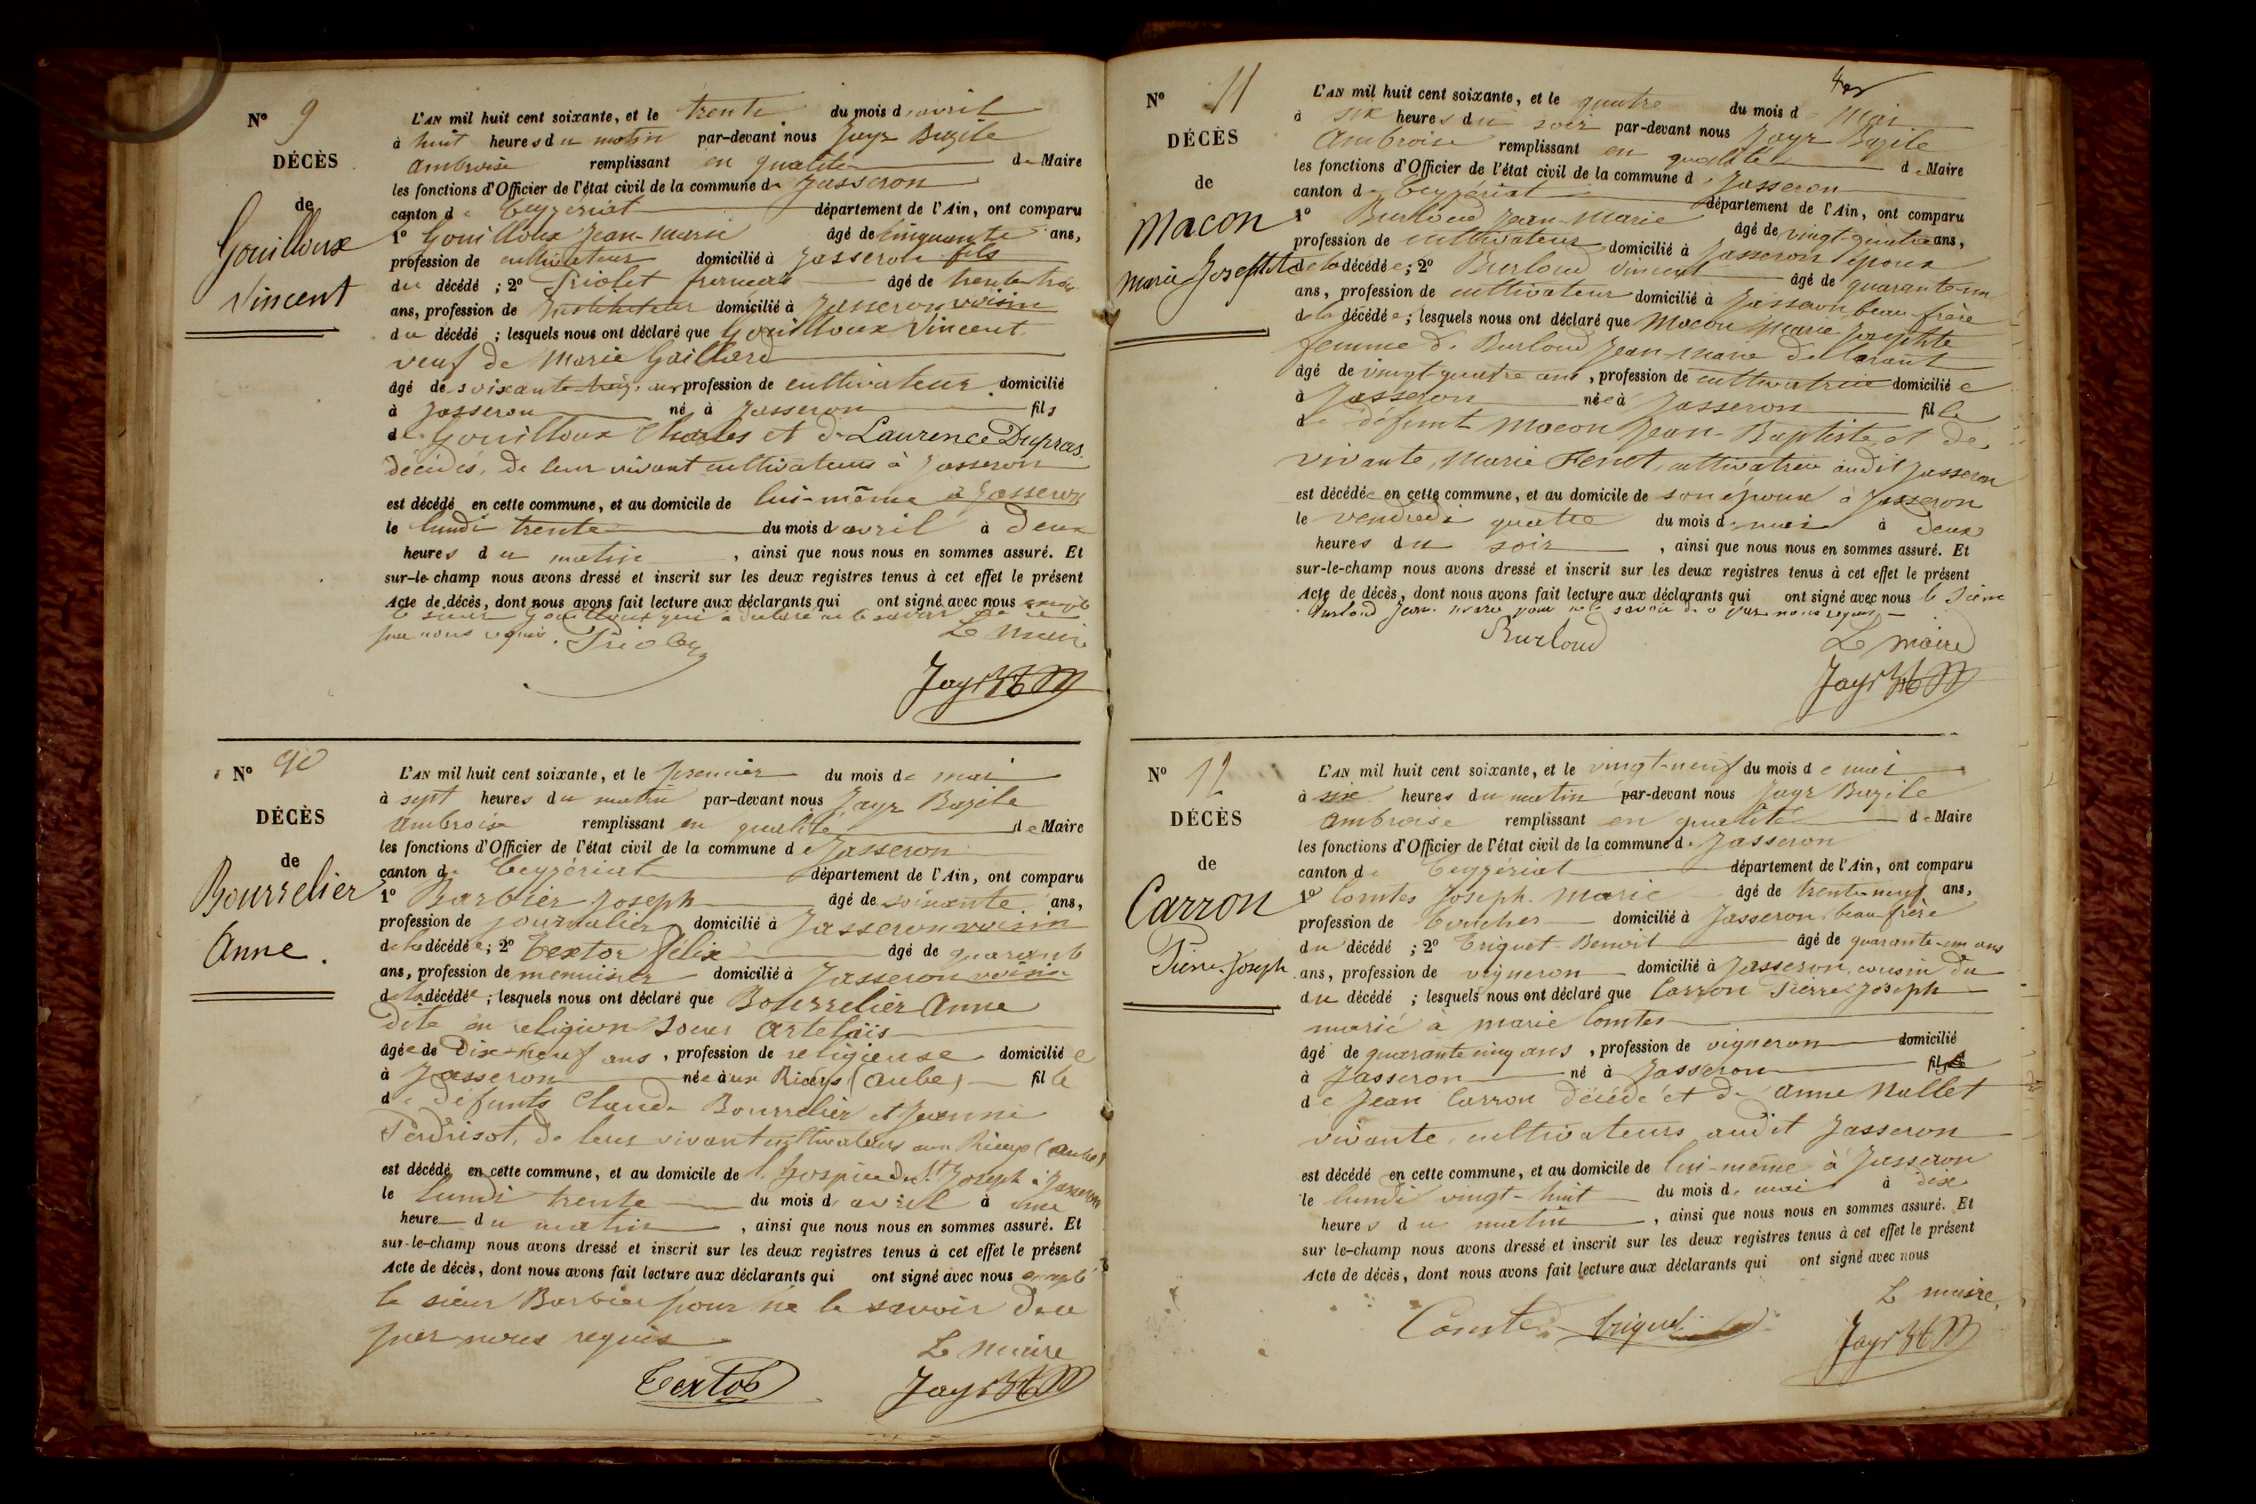 N° 9
DÉCÈS
de
Gouilloux
Vincent
L'AN mil huit cent soixante, et le trente du mois d'avril
à huit heures du matin par-devant nous Jayr Bazile
Ambroise remplissant en qualité de Maire
les fonctions d'Officier de l'état civil de la commune de Jasseron
canton de Ceyzériat département de l'Ain, ont comparu
1° Gouilloux Jean-Marie âgé de cinquante ans,
profession de cultivateur domicilié à Jasseron fils
du décédé ; 2° Triolet âgé de trente trois
ans, profession de Instituteur domicilié à Jasseron voisin
du décédé ; lesquels nous ont déclaré que Gouilloux Vincent
veuf de Marie Gaillard
âgé de soixante treize ans profession de cultivateur domicilié
à Jasseron né à Jasseron fils
de Gouilloux Charles et de Laurence Dupras
décédés, de leur vivant cultivateurs à Jasseron
est décédé en cette commune, et au domicile de lui-même à Jasseron
le lundi trente du mois d'avril à deux
heures du matin , ainsi que nous nous en sommes assuré. Et
sur-le-champ nous avons dressé et inscrit sur les deux registres tenus à cet effet le présent
Acte de décès, dont nous avons fait lecture aux déclarants qui ont signé avec nous excepté
le sieur Gouilloux qui a déclaré ne le savoir de ce
par nous requis. Triolet Le Maire
Jayr
N° 10
DÉCÈS
de
Bourrelier
Anne.
L'AN mil huit cent soixante, et le premier du mois de mai
à sept heures du matin par-devant nous Jayr Bazile
Ambroise remplissant en qualité de Maire
les fonctions d'Officier de l'état civil de la commune de Jasseron
canton de Ceyzériat département de l'Ain, ont comparu
1° Barbier Joseph âgé de soixante ans,
profession de journalier domicilié à Jasseron voisin
de la décédée ; 2° Textor félix âgé de quarante
ans, profession de menuisier domicilié à Jasseron voisin
de la décédée ; lesquels nous ont déclaré que Bourrelier Anne
dite en religion Soeur Artelaïs
âgée de Dix-neuf ans , profession de religieuse domiciliée
à Jasseron née aux Riceys (Aube) fille
de défunts Claude Bourrelier et Jeanne
Perdrisot, de leur vivant cultivateurs aux Riceys (Aube)
est décédé en cette commune, et au domicile de l'hospice de St Joseph à Jasseron
le lundi trente du mois d'avril à une
heure du matin , ainsi que nous nous en sommes assuré. Et
sur-le-champ nous avons dressé et inscrit sur les deux registres tenus à cet effet le présent
Acte de décès, dont nous avons fait lecture aux déclarants qui ont signé avec nous excepté
le sieur Barbier pour ne le savoir de ce
par nous requis
Le maire
Textor Jayr
N° 11
DÉCÈS
de
Macon
Marie Josephte
L'AN mil huit cent soixante, et le quatre du mois de Mai
à six heures du soir par-devant nous Jayr Bazile
Ambroise remplissant en qualité de Maire
les fonctions d'Officier de l'état civil de la commune de Jasseron
canton de Ceyzériat département de l'Ain, ont comparu
1° Burloud Jean-Marie âgé de vingt-quatre ans,
profession de cultivateur domicilié à Jasseron époux
de la décédée ; 2° Burloud Vincent âgé de quarante-un
ans, profession de cultivateur domicilié à Jasseron beau-frère
de la décédée ; lesquels nous ont déclaré que Macon Marie Josephte
femme de Burloud Jean-Marie déclarant
âgé de vingt quatre ans , profession de cultivatrice domiciliée
à Jasseron née à Jasseron fille
de défunt Macon Jean-Baptiste et de
vivante, Marie Fenet, cultivatrice audit Jasseron
est décédée en cette commune, et au domicile de son époux à Jasseron
le vendredi quatre du mois de mai à deux
heures du soir , ainsi que nous nous en sommes assuré. Et
sur-le-champ nous avons dressé et inscrit sur les deux registres tenus à cet effet le présent
Acte de décès, dont nous avons fait lecture aux déclarants qui ont signé avec nous
Burloud Jean-Marie pour ne le savoir de ce par nous requis
Burloud Le maire
Jayr
N° 12
DÉCÈS
de
Carron
Pierre-Joseph
L'AN mil huit cent soixante, et le vingt-neuf du mois de mai
à six heures du matin par-devant nous Jayr Bazile
Ambroise remplissant en qualité de Maire
les fonctions d'Officier de l'état civil de la commune de Jasseron
canton de Ceyzériat département de l'Ain, ont comparu
1° Comtes Joseph-Marie âgé de trente-neuf ans,
profession de boucher domicilié à Jasseron, beau-frère
du décédé ; 2° Triquet Benoit âgé de quarante-un ans
ans, profession de vigneron domicilié à Jasseron, cousin du
du décédé ; lesquels nous ont déclaré que Carron Pierre-Joseph
marié à Marie Comtes
âgé de quarante cinq ans , profession de vigneron domicilié
à Jasseron né à Jasseron fils
de Jean Carron décédé et de Anne Nallet
vivante, cultivateurs audit Jasseron
est décédé en cette commune, et au domicile de lui-même à Jasseron
le lundi vingt-huit du mois de mai à dix
heures du matin , ainsi que nous nous en sommes assuré. Et
sur le-champ nous avons dressé et inscrit sur les deux registres tenus à cet effet le présent
Acte de décès, dont nous avons fait lecture aux déclarants qui ont signé avec nous
Le maire,
Comte Triquet Jayr